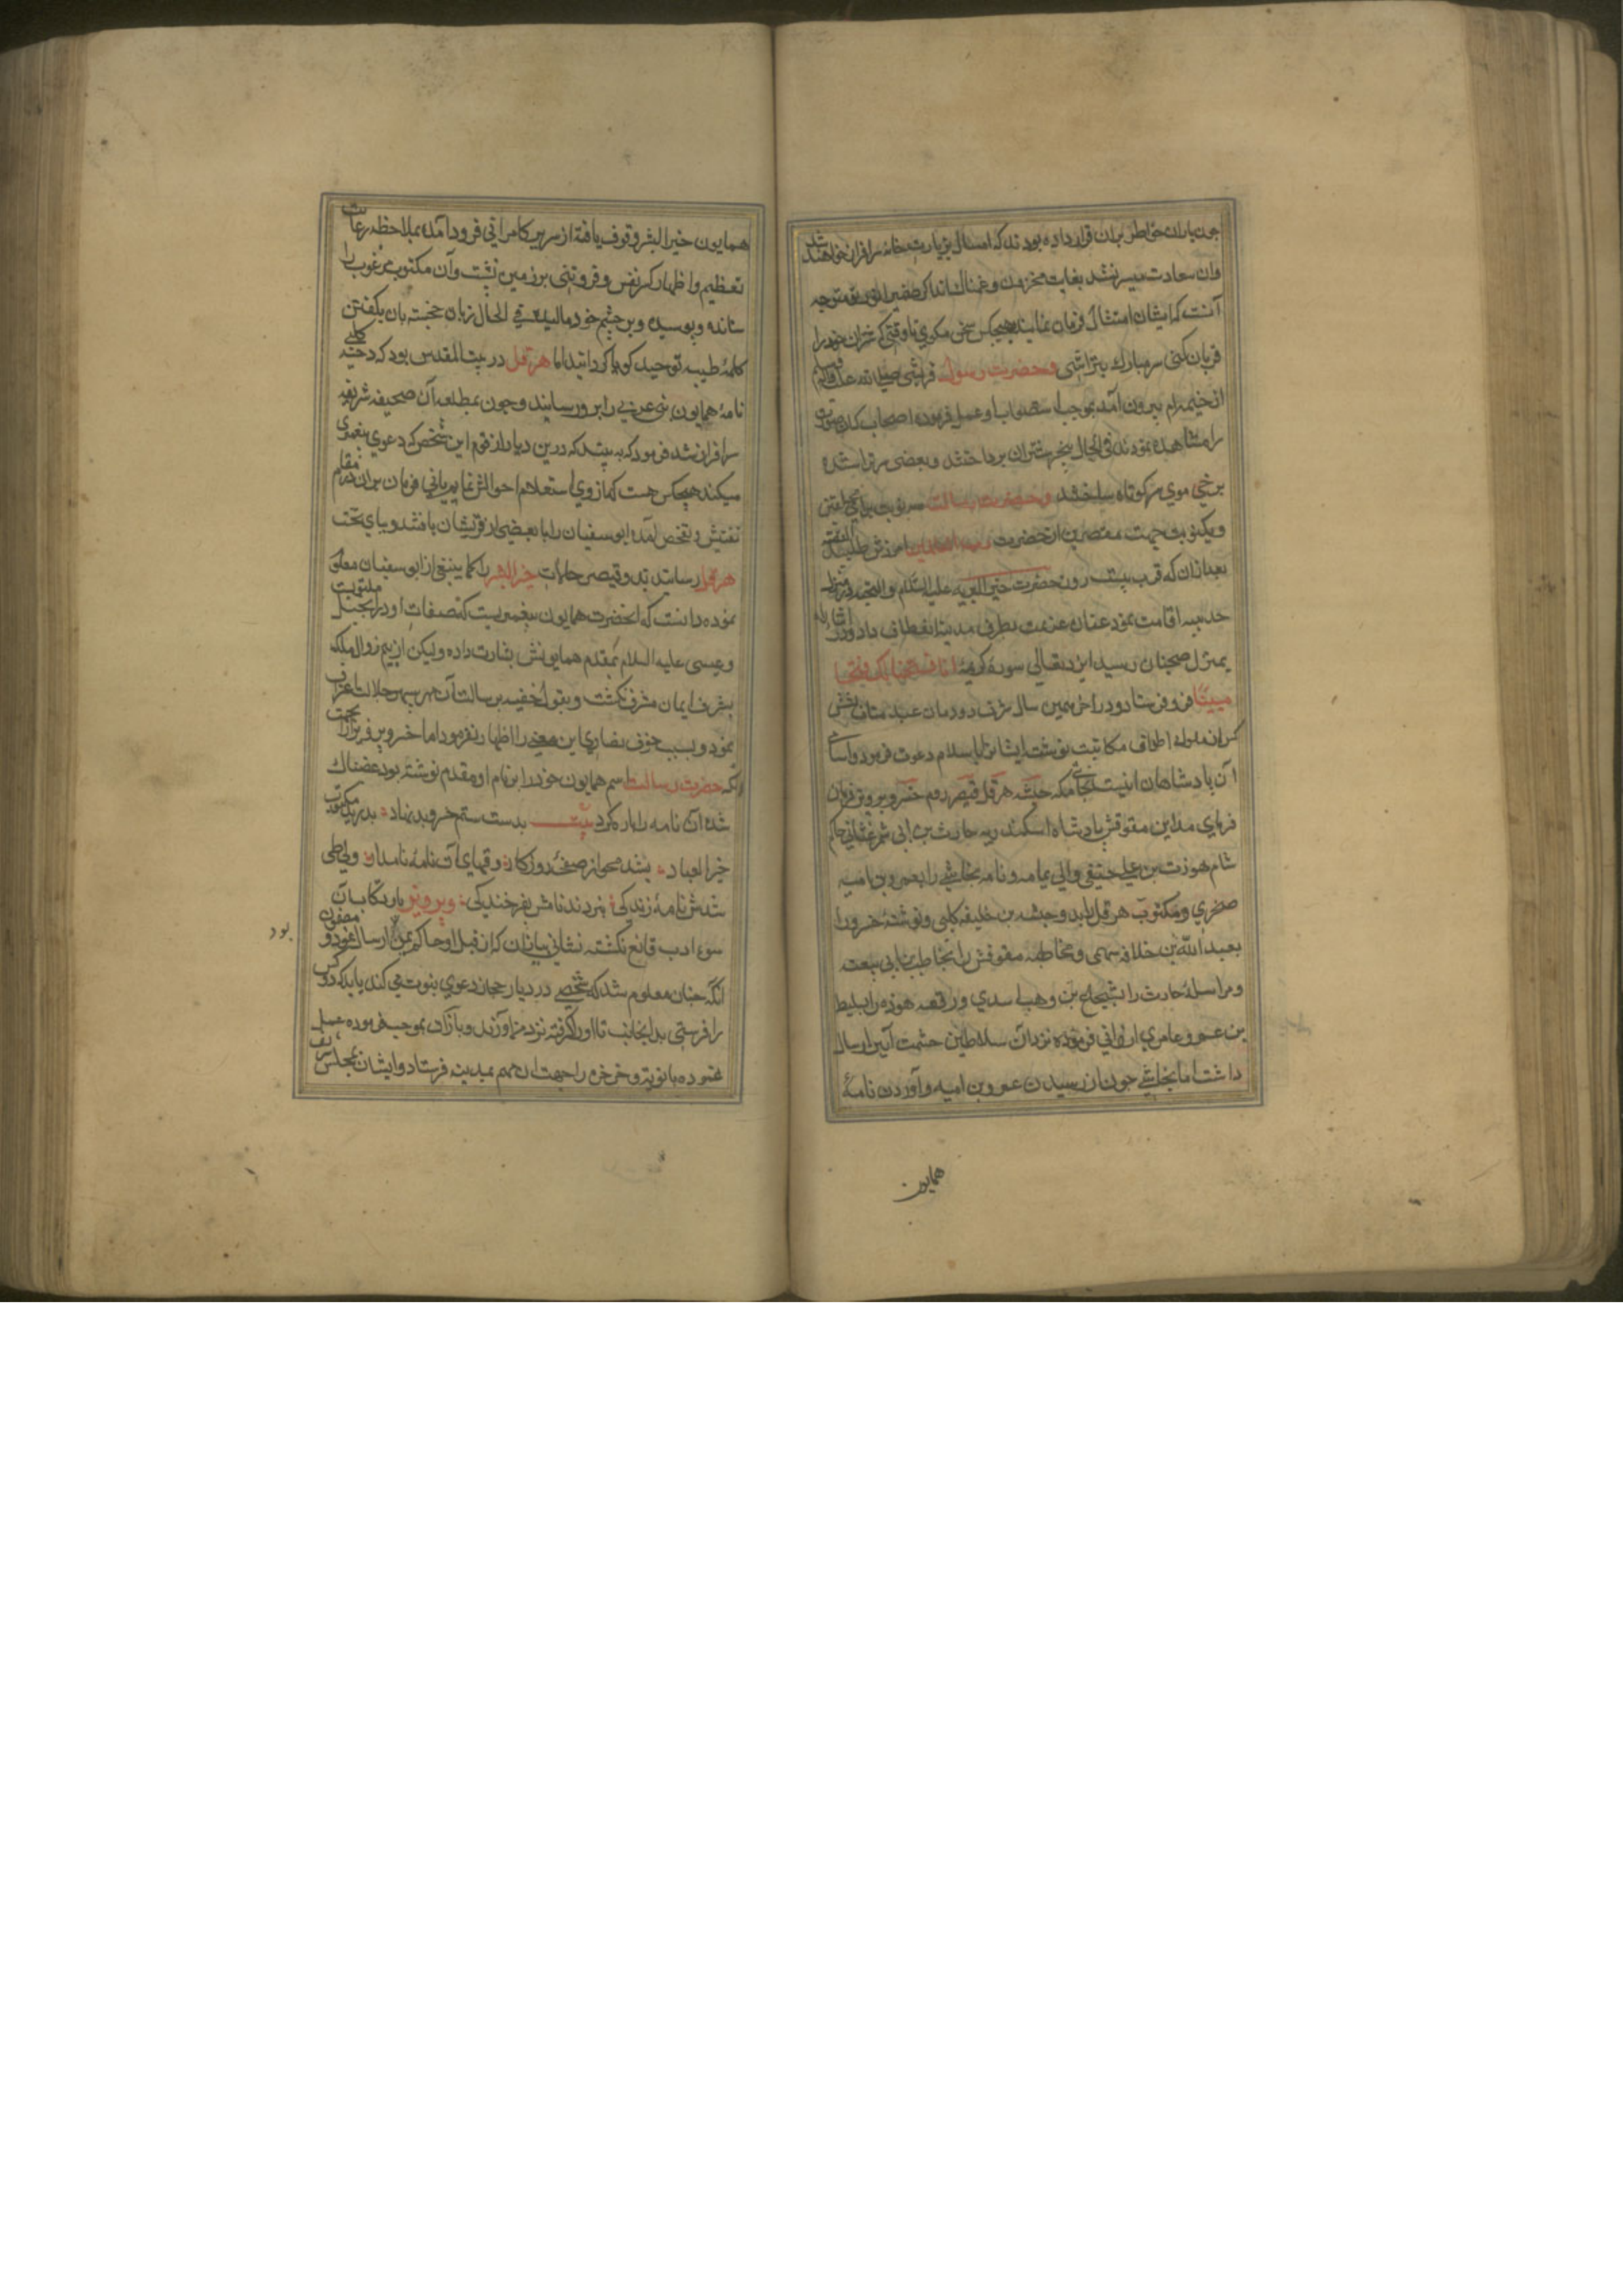 چون یاران خواطر بران قرار داده بودند که امسال بزیارت خانه سرافراز خواهند شد
وان سعادت میسر نشد بغایت محزون و غمناک اند اکر ضمیر انور متوجه
آنست که ایشان امتثال فرمان نمایند بهیچکس سخن مکوی تا وقتی که شتران خود را
قربان کنی سر مبارک بتراشی و حضرت رسول قرشی صلی الله علیه و آله وسلم
از خیمه بیرون آمده بموجب استصواب او عمل فرموده اصحاب که این صورت
را مشاهده نمودند فی الحال بنحر شتران پرداختند و بعضی سر تراشیده
برخی موی سر کوتاه ساختند و حضرت رسالت سه نوبت برای محلقین
و یکنوبت جهت مقصرین از حضرت رب العالمین آمرزش طلبید القصه
بعد ازان که قرب بیست روز حضرت خیر البریه علیه السلام و التحیه در منزل
حدیبیه اقامت نمود عنان عزیمت بطرف مدینه انعطاف داد و در اثنا راه
بمنزل ضجنان رسید ایزد تعالی سوره کریمه انا فتحنا لک فتحا
مبینا فرو فرستاد و در آخر همین سال شرف دودمان عبد مناف بخش
کران ملوک اطراف مکاتبت نوشت ایشانرا باسلام دعوت فرمود و اسامی
آن پادشاهان اینست نجاشی ملکه حبشه هرقل قیصر روم خسرو پرویز فرمان
فرمای مداین مقوقش پادشاه اسکندریه حارث بن ابی شمر غسانی حاکم
شام هوذت بن علی حنیفی والی یمامه و نامه نجاشی را بعمرو بن امیه
ضمری و مکتوب هرقل را بدحیشه بن خلیفه کلبی و نوشته خسرو را
بعبد الله بن حذافه سهمی و مخاطبه مقوقش را بحاطب بن ابی بلتعه
و مراسله حارث را بشجاع بن وهب اسدی و رقعه هوذه را بسلیط
بن عمرو عامری ارزانی فرموده نزد آن سلاطین حشمت آیین ارسال
داشت اما نجاشی چون از رسیدن عمرو بن امیه و آوردن نامهٔ
همایون
همایون خیر البشر وقوف یافته از سریر کامرانی فرود آمده بملاحظه رعایت
تعظیم و اظهار کسر نفس و فروتنی بر زمین نشست و آن مکتوب مرغوب را
ستانده و بوسیده و بر چشم خود مالیده فی الحال زبان خجسته بان بکفتن
کلمه طیبه توحید کویا کردانید اما هرقل در بیت المقدس بود که دحیه کلبی
نامهٔ همایون نبی عربی را برو رسانید و چون بمطالعه آن صحیفه شریفه
سرافراز شد فرمود که ببینید که درین دیار از قوم این شخص که دعوی پیغمبری
میکند هیچکس هست که از وی استعلام احوالش نماییم یانی فرمان بران در مقام
تفتیش و تفحص آمده ابو سفیان را با بعضی از قریشان یافتند و بپای تخت
هرقل رسانیدند و قیصر حالات خیر البشر را کما ینبغی از ابو سفیان معلوم
نموده دانست که آنحضرت همایون پیغمبریست که صفات او در انجیل مکتوبست
و عیسی علیه السلام بمقدم همایونش بشارت داده و لیکن از بیم زوال ملک
بشرف ایمان مشرف نکشت و بقولی خفیه برسالت آن مهر سپهر جلالت اعتراف
نمود و بسبب خوف نصاری این معنی را اظهار نفرمود اما خسرو پرویز از جهت
انکه حضرت رسالت اسم همایون خود را بر نام او مقدم نوشته بود غضناک
شده آن نامه را پاره کرد بیت بدست ستم خسرو بد نهاد بدرید مکتوب
خیر العباد بشد محو از صفحهٔ روزکار رقمهای آن نامهٔ نامدار ولی طی
شدش نامهٔ زندکی نبردند نامش بفرخندکی و پرویز بارتکاب آن
سوء ادب قانع نکشته نشانی بباذان که از قبل او حاکم یمن بود ارسال نمود مضمون
آنکه چنان معلوم شد که شخصی در دیار حجاز دعوی نبوت می کند باید که دو کس
را فرستی بدانجانب تا او را کرفته نزد من آورند و باذان بموجب فرموده عمل
نموده بانویه و خرخره را جهت این مهم بمدینه فرستاد و ایشان بمجلس شریف
بود